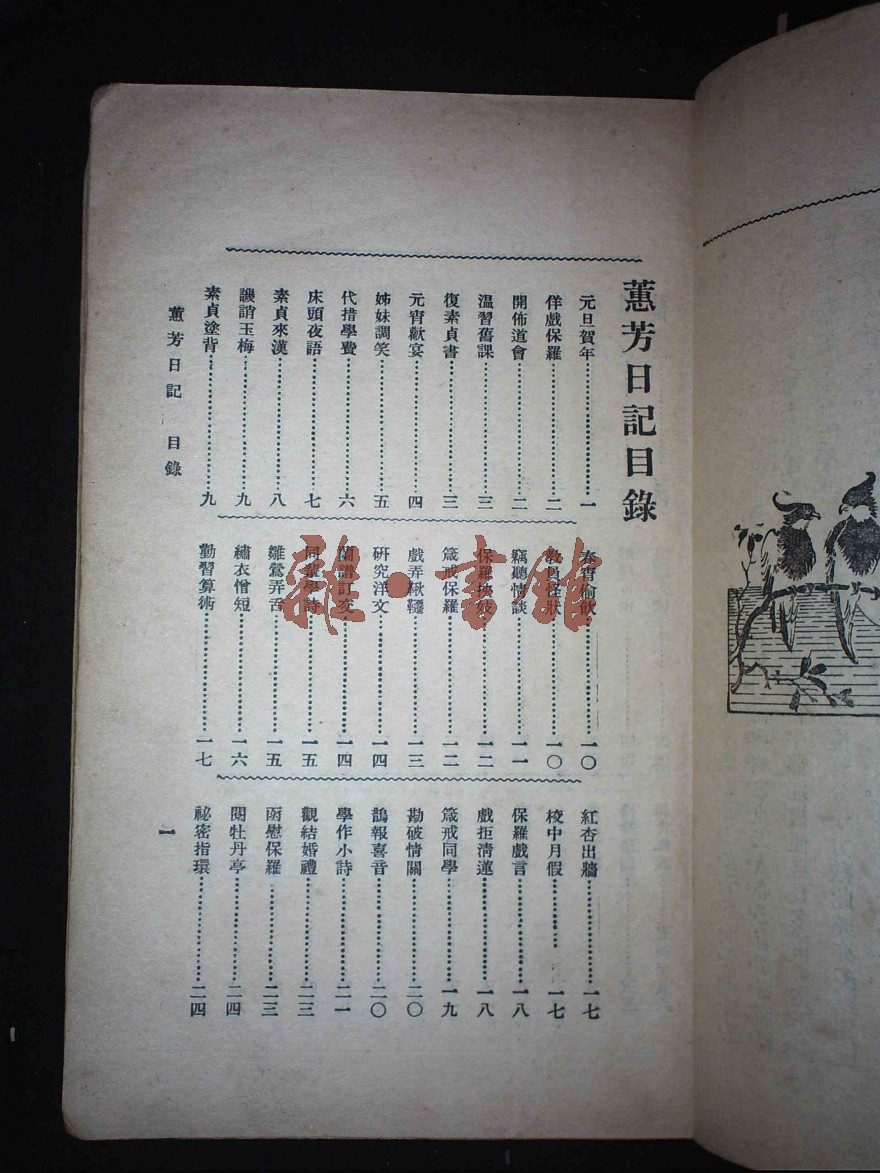 蕙芳日記目錄
元旦賀年一
佯戲保羅二
開佈道會二
溫習舊課三
復素貞書三
元宵歡宴四
姊妹調笑五
代措學費六
床頭夜語七
素貞來漢八
譏誚玉梅九
素貞塗背九
春宵偷飲一〇
教員怪狀一〇
竊聽情談一一
保羅挾妓一二
箴戒保羅一二
戲弄鞦韆一三
研究洋文一四
蘭譜訂交一四
同登學詩一五
雛鶯弄舌一五
繡衣憎短一六
勸習算術一七
紅杏出牆一七
校中月假一七
保羅戲言一八
戲拒清蓮一八
箴戒同學一九
勘破情關二〇
鵲報喜音二〇
學作小詩二一
觀結婚禮二三
函慰保羅二三
閱牡丹亭二四
祕密指環二四
蕙芳日記 目錄
一
雜·書館